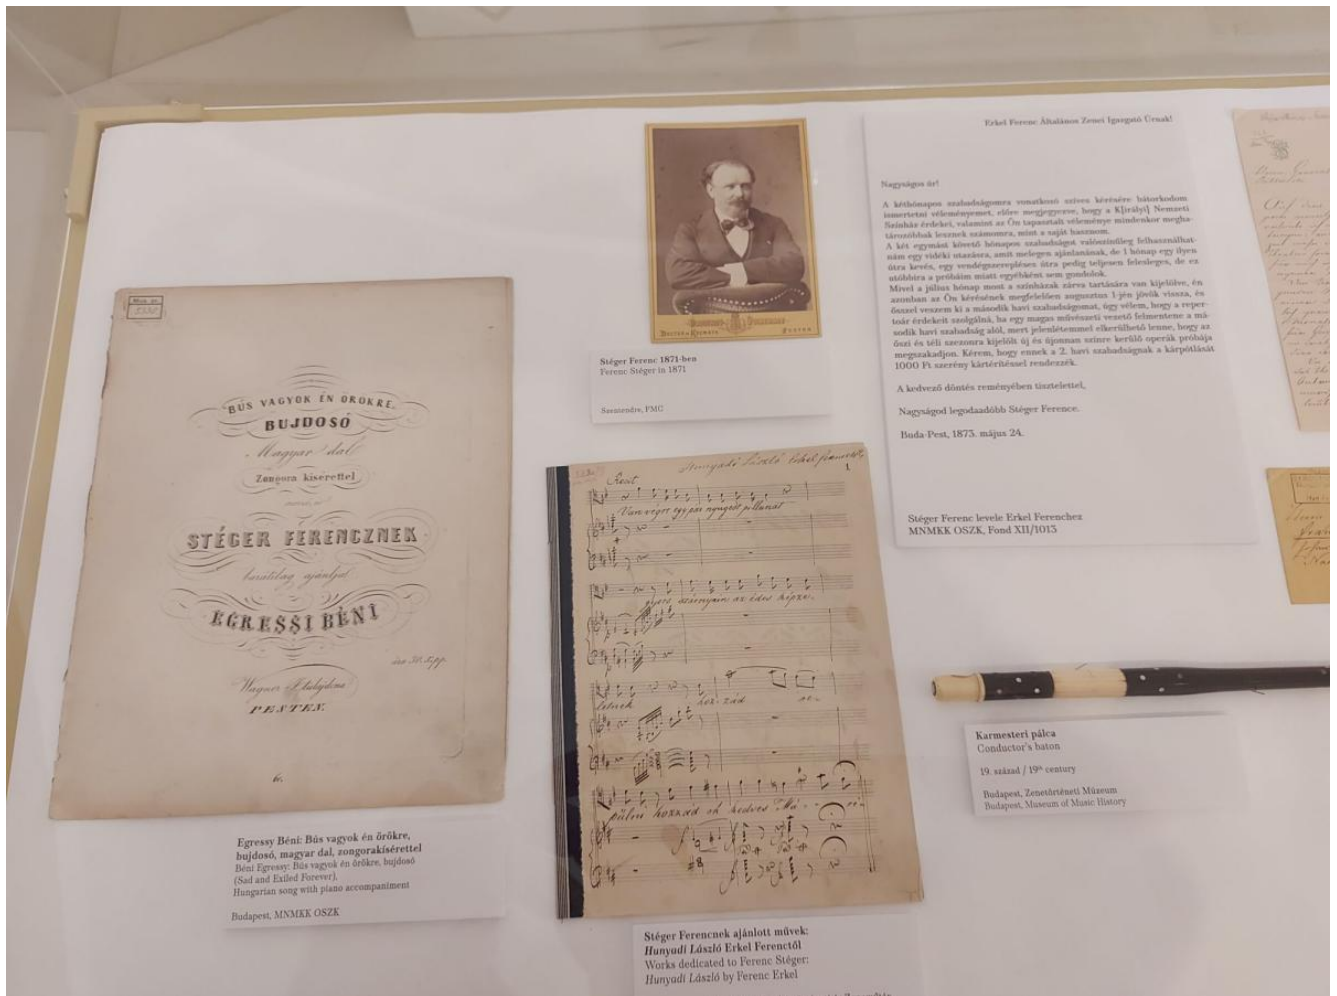 BÚS VAGYOK ÉN ÖRÖKRE,
BUJDOSÓ
Magyar dal
Zongora kísérettel
STÉGER FERENCZNEK
barátilag ajánlja
EGRESSI BÉNI
ára 30. k.pp.
Wagner
PESTEN.
6.
Egressy Béni: Bús vagyok én örökre,
bujdosó, magyar dal, zongorakísérettel
Béni Egressy: Bús vagyok én örökre, bujdosó
(Sad and Exiled Forever),
Hungarian song with piano accompaniment
Budapest, MNMKK OSZK
Stéger Ferenc 1871-ben
Ferenc Stéger in 1871
Szentendre, FMC
Hunyadi László Erkel Ferencz
1
Van végre egy pár nyugodt pillanat
gyors szárnyain az édes képze-
letnek hoz-zád re-
pülni hozzád oh kedves Má- - ri-
Stéger Ferencnek ajánlott művek:
Hunyadi László Erkel Ferenctől
Works dedicated to Ferenc Stéger:
Hunyadi László by Ferenc Erkel
Erkel Ferenc Általános Zenei Igazgató Úrnak!
Nagyságos úr!
A kéthónapos szabadságomra vonatkozó szíves kérésére bátorkodom
ismertetni véleményemet, előre megjegyezve, hogy a K[irályi] Nemzeti
Színház érdekei, valamint az Ön tapasztalt véleménye mindenkor megha-
tározóbbak lesznek számomra, mint a saját hasznom.
A két egymást követő hónapos szabadságot valószínűleg felhasználhat-
nám egy vidéki utazásra, amit melegen ajánlanának, de 1 hónap egy ilyen
útra kevés, egy vendégszerepléses útra pedig teljesen felesleges, de ez
utóbbira a próbáim miatt egyébként sem gondolok.
Mivel a július hónap most a színházak zárva tartására van kijelölve, én
azonban az Ön kérésének megfelelően augusztus 1-jén jövök vissza, és
ősszel veszem ki a második havi szabadságomat, úgy vélem, hogy a reper-
toár érdekeit szolgálná, ha egy magas művészeti vezető felmentene a má-
sodik havi szabadság alól, mert jelenlétemmel elkerülhető lenne, hogy az
őszi és téli szezonra kijelölt új és újonnan színre kerülő operák próbája
megszakadjon. Kérem, hogy ennek a 2. havi szabadságnak a kárpótlását
1000 Ft szerény kártérítéssel rendezzék.
A kedvező döntés reményében tisztelettel,
Nagyságod legodaadóbb Stéger Ference.
Buda-Pest, 1873. május 24.
Stéger Ferenc levele Erkel Ferenchez
MNMKK OSZK, Fond XII/1013
Karmesteri pálca
Conductor's baton
19. század / 19th century
Budapest, Zenetörténeti Múzeum
Budapest, Museum of Music History